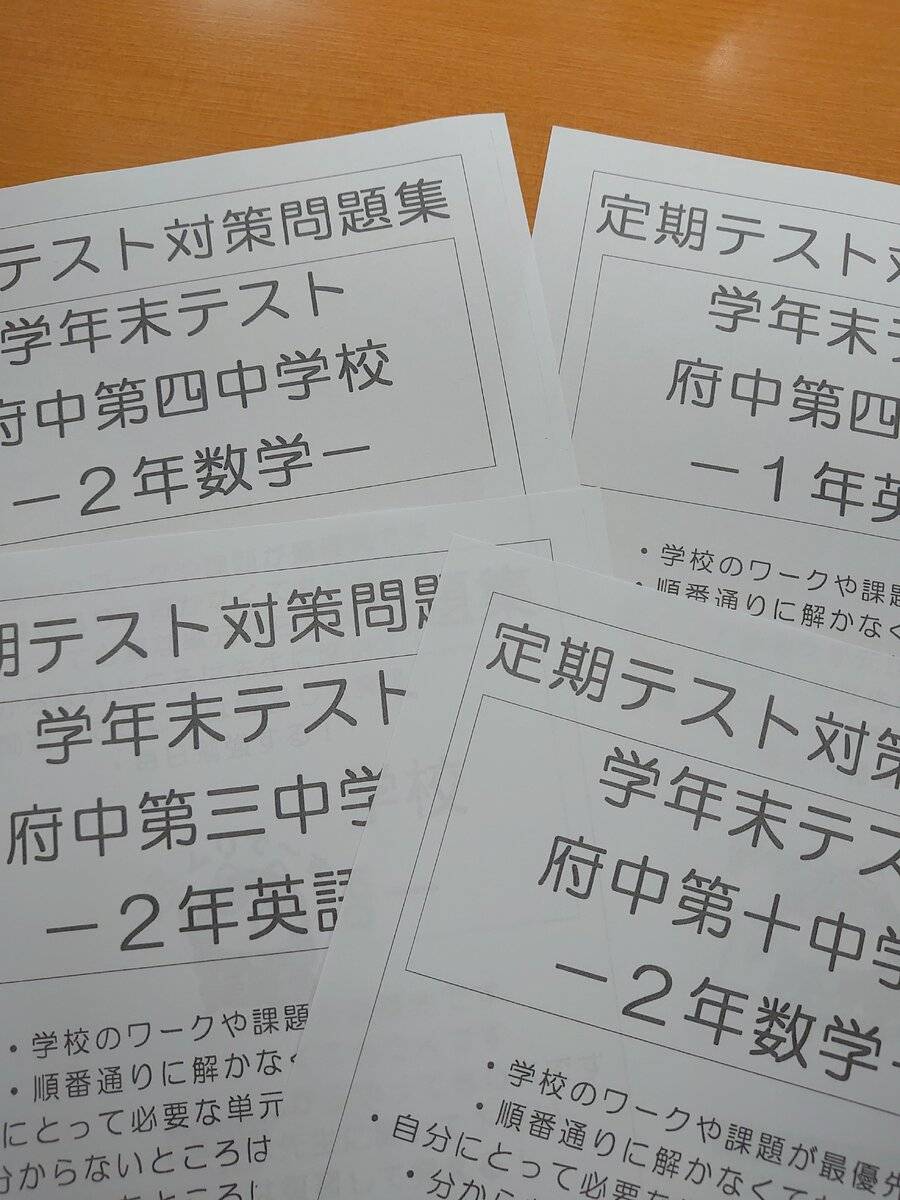 テスト対策問題集
学年末テスト
府中第四中学校
－２年数学－
定期テスト対
学年末テ
府中第四
－１年英
・学校のワークや課題
・順番通りに解かなく
期テスト対策問題
学年末テスト
府中第三中学
－２年英語
・学校のワークや課題
・順番通りに解かなく
にとって必要な単元
分からないところは
定期テスト対策
学年末テス
府中第十中学
－２年数学－
・学校のワークや課題が最優先
・順番通りに解かなくて
・自分にとって必要な
・分から